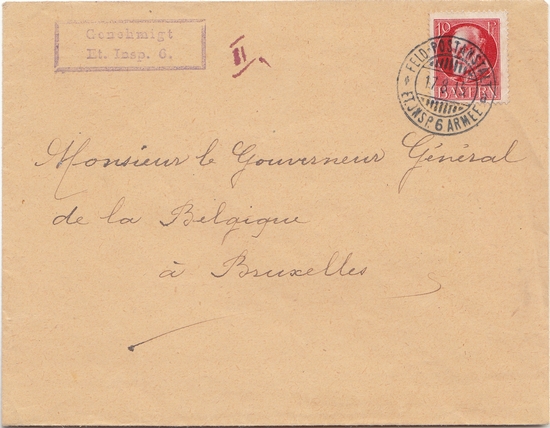 Genehmigt
Et. Insp. 6.
II
10 Pf
BAYERN
FELD-POSTANSTALT
17.8.
ET. JNSP. 6 ARMEE
Monsieur le Gouverneur Général
de la Belgique
à Bruxelles